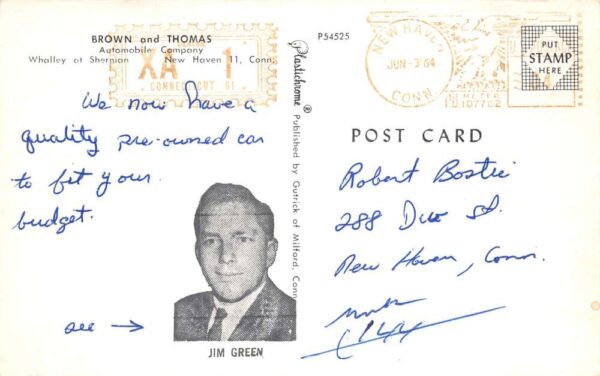 BROWN and THOMAS
Automobile Company
Whalley at Sherman New Haven 11, Conn.
XA 1
CONNECTICUT 61
P54525
NEW HAVEN
JUN-3'64
CONN.
METER
107702
PUT
STAMP
HERE
Plastichrome ® Published by Gutrick of Milford, Conn.
We now have a
quality pre-owned car
to fit your
budget.
see →
JIM GREEN
POST CARD
Robert Bostic
288 St.
New Haven, Conn.